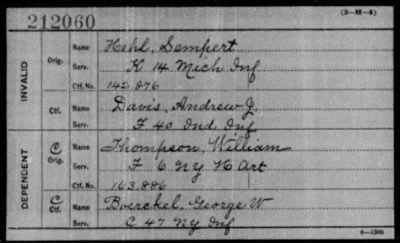 212060
(3-M-4)
INVALID
Orig. Name Hehl, Sempert
Serv. K 14 Mich Inf
Ctf. No. 142.876
Ctf. Name Davis, Andrew J.
Serv. F 40 Ind Inf
DEPENDENT
C Orig. Name Thompson, William
Serv. F 6 NY H Art
Ctf. No. 163.886
C Ctf. Name Boerckel, George W
Serv. C 47 Ny Inf